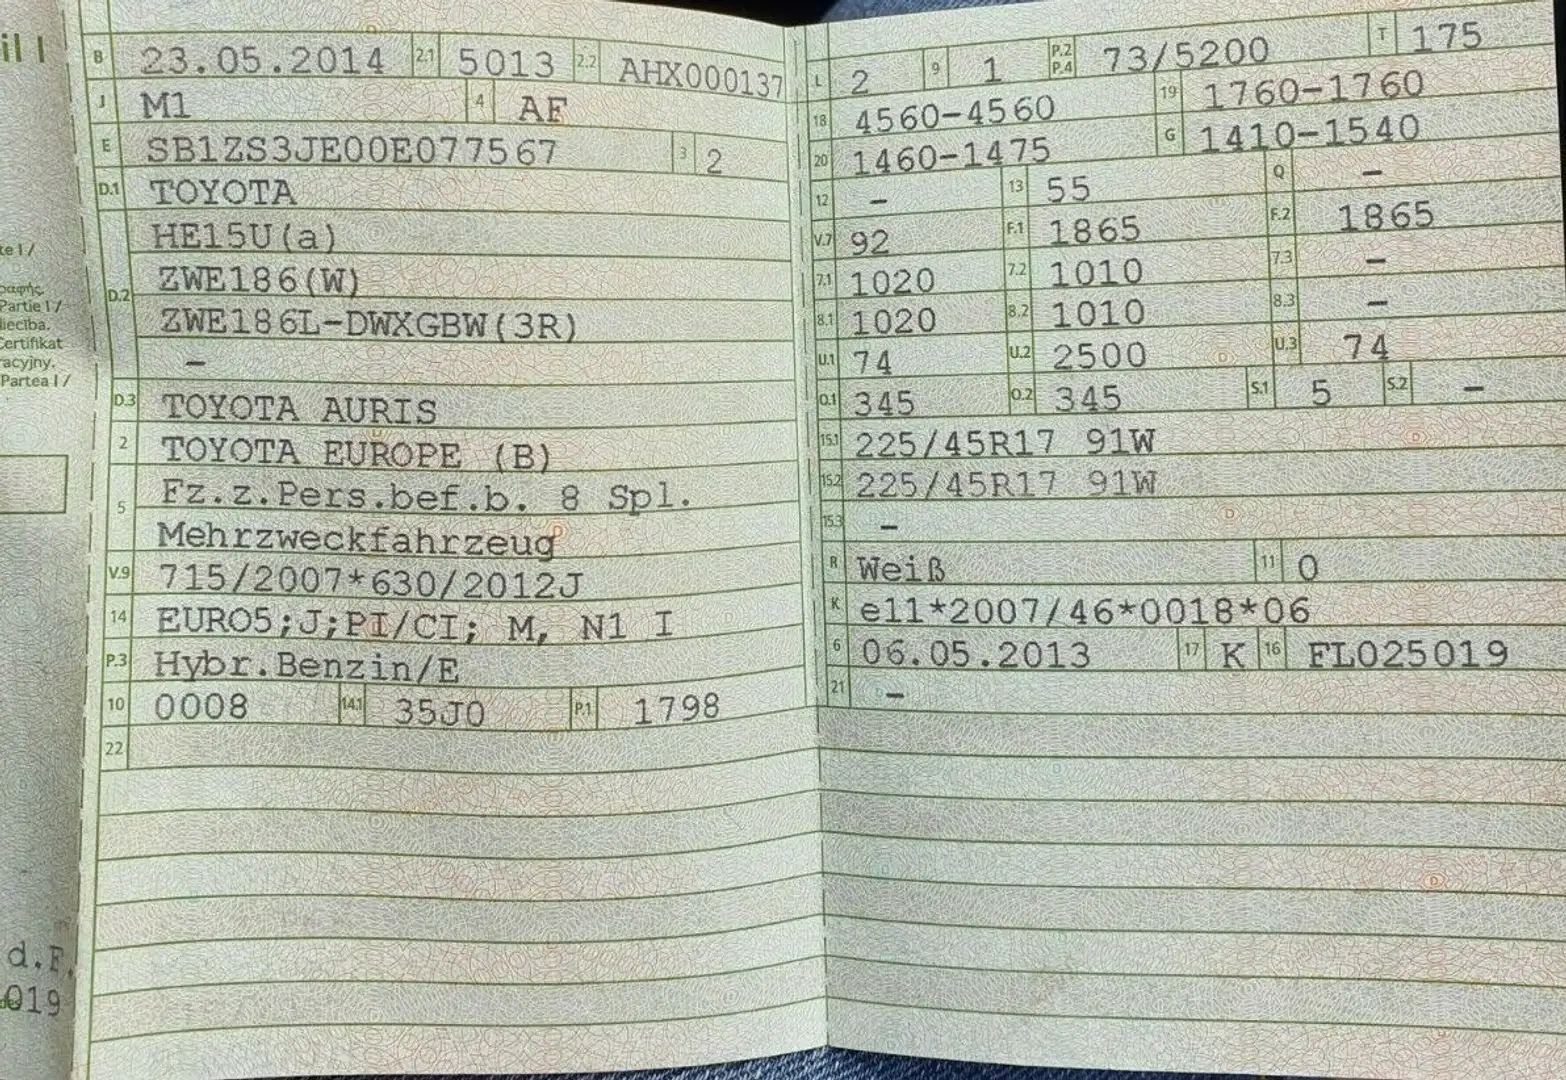 il I
B 23.05.2014 2.1 5013 2.2 AHX000137
J M1 4 AF
E SB1ZS3JE00E077567 3 2
D.1 TOYOTA
HE15U(a)
D.2 ZWE186(W)
ZWE186L-DWXGBW(3R)
–
D.3 TOYOTA AURIS
2 TOYOTA EUROPE (B)
5 Fz.z.Pers.bef.b. 8 Spl.
Mehrzweckfahrzeug
V.9 715/2007*630/2012J
14 EURO5;J;PI/CI; M, N1 I
P.3 Hybr.Benzin/E
10 0008 14.1 35J0 P.1 1798
22
L 2 9 1 P.2 P.4 73/5200 T 175
18 4560-4560 19 1760-1760
20 1460-1475 G 1410-1540
12 – 13 55 Q –
V.7 92 F.1 1865 F.2 1865
7.1 1020 7.2 1010 7.3 –
8.1 1020 8.2 1010 8.3 –
U.1 74 U.2 2500 U.3 74
O.1 345 O.2 345 S.1 5 S.2 –
15.1 225/45R17 91W
15.2 225/45R17 91W
15.3 –
R Weiß 11 0
K e11*2007/46*0018*06
6 06.05.2013 17 K 16 FL025019
21 –
te I /
Partie I /
liecība.
Certifikat
racyjny.
Partea I /
d.F.
019